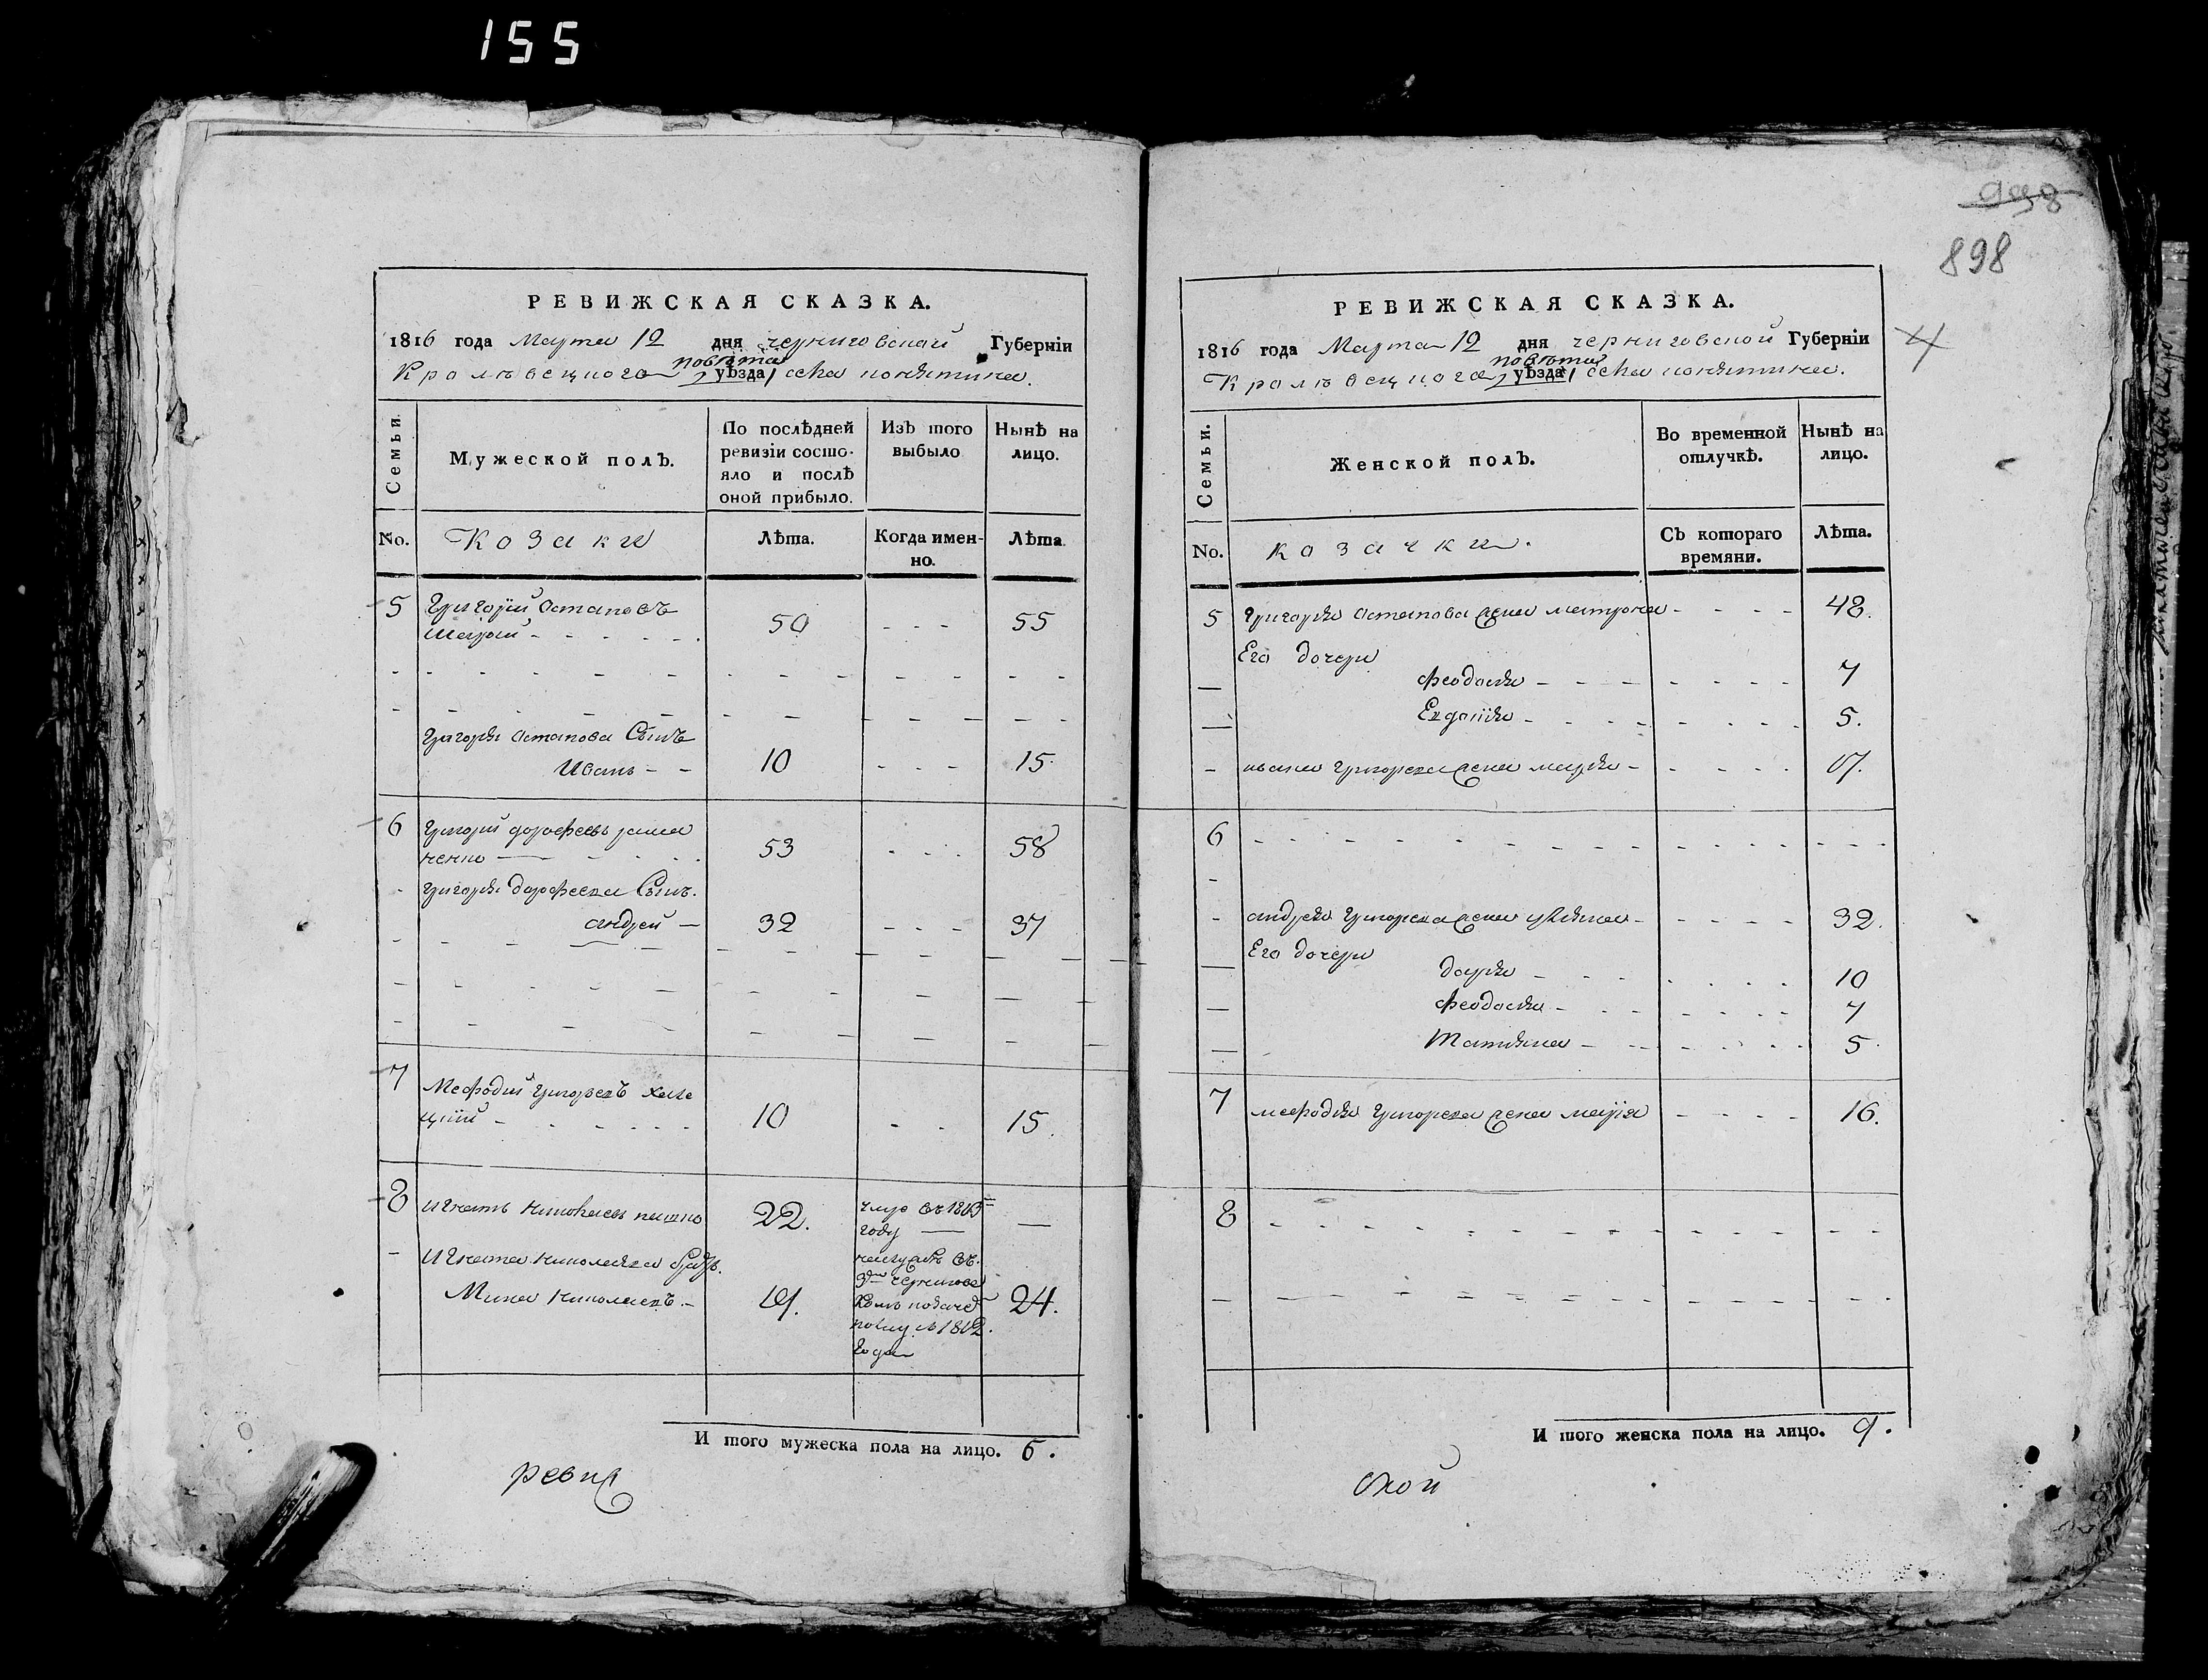 155
998
898
4
РЕВИЖСКАЯ СКАЗКА.
1816 года Марта 12 дня черниговской Губерніи
повѣта
Кролѣвецкого уѣзда, села
Семьи.
Мужеской полъ.
По послѣдней ревизіи состо-
яло и послѣ
оной прибыло.
Изъ того
выбыло
Нынѣ на
лицо.
No.
Козаки
Лѣта.
Когда имен-
но.
Лѣта
5 Григорій Остаповъ
50 - - - 55
Григорія Остапова Сынъ
Иванъ - - 10 - - - 15.
6 Григорій дорофеевъ
ченко 53 - - - 58
Григорія Дорофеева Сынъ.
андрей — 32 - - - 37
7 Мефодий Григорьевъ
10 - - 15.
8 Игнатъ Николаевъ 22. въ 1813 —
году
Игната Николаева
Мина Николаевъ. - 19. 24.
въ.
3й
1812.
года
И того мужеска пола на лицо. 6.
ревиж
РЕВИЖСКАЯ СКАЗКА.
1816 года Марта 12 дня черниговской Губерніи
повѣта
Кролѣвецкога уѣзда, села
Семьи.
Женской полъ.
Во временной
отлучкѣ.
Нынѣ на
лицо.
No.
козачки.
Съ котораго
времяни.
Лѣта.
5 Григорія Остапова жена матрона - - - - 48.
Его дочери
Феодосія - - - 7
5.
ивана Григорева жена марія - - - - 17.
6
андрея Григорева жена - - - - 32.
Его дочери
дарія - - - 10
Феодосія - - - 7
Татіяна - - - 5
7 мефодія Григорева жена марія - - - - 16.
8
И того женска пола на лицо. 9.
ской